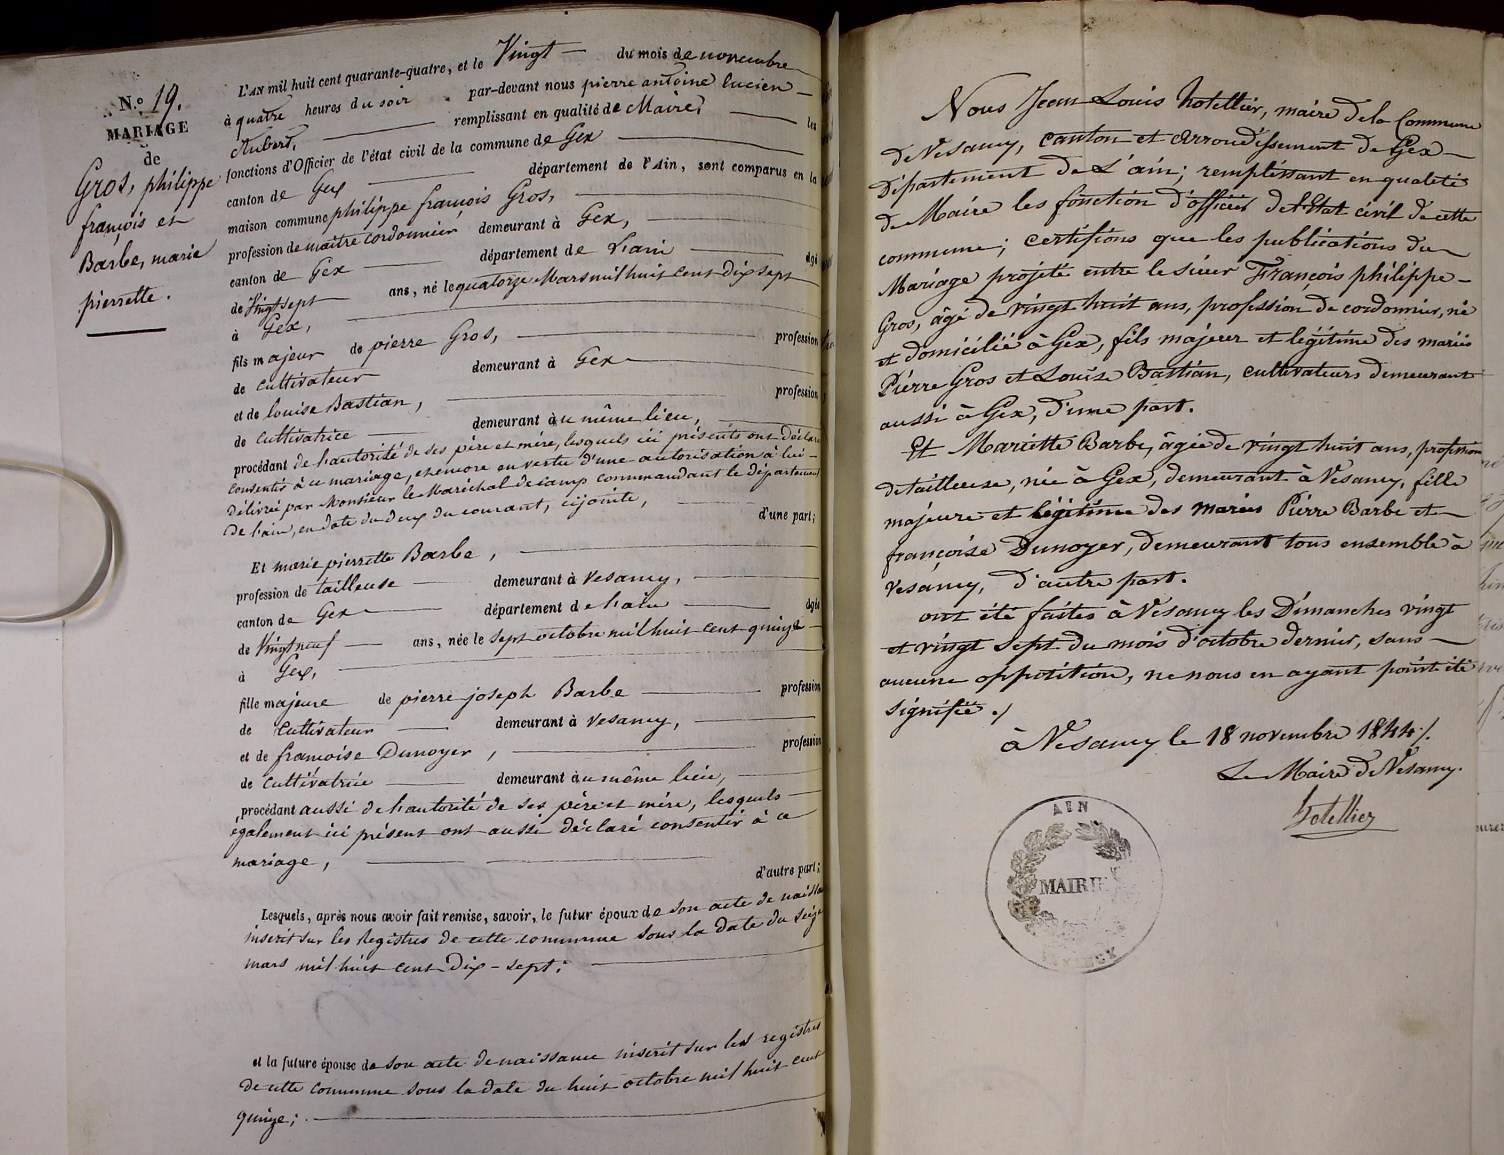 N.º 19.
MARIAGE
de
Gros, philippe
françois et
Barbe, marie
pierrette.
L'AN mil huit cent quarante-quatre, et le Vingt du mois de novembre
à quatre heures du soir par-devant nous pierre antoine Lucien
Aubert, remplissant en qualité de Maire, les
fonctions d'Officier de l'état civil de la commune de Gex
canton de Gex département de l'Ain, sont comparus en la
maison commune philippe françois Gros,
profession de maître cordonnier demeurant à Gex,
canton de Gex département de l'ain âgé
de Vingt sept ans, né le quatorze Mars mil huit cent Dix sept
à Gex,
fils majeur de pierre Gros, profession
de cultivateur demeurant à Gex
et de louise Bastian, profession
de cultivatrice demeurant au même lieu,
procédant de l'autorité de ses père et mère, lesquels ici présents ont déclaré
consentir à ce mariage, et encore en vertu d'une autorisation à lui
délivrée par Monsieur le Maréchal de camp commandant le département
de l'ain, en date du deux du courant, cijointe, d'une part;
Et marie pierrette Barbe,
profession de tailleuse demeurant à Vesancy,
canton de Gex département de l'ain âgée
de Vingt neuf ans, née le sept octobre mil huit cent quinze
à Gex,
fille majeure de pierre joseph Barbe profession
de Cultivateur demeurant à Vesancy,
et de françoise Dunoyer, profession
de Cultivatrice demeurant au même lieu,
procédant aussi de l'autorité de ses père et mère, lesquels
également ici présent ont aussi déclaré consentir à ce
mariage,
d'autre part;
Lesquels, après nous avoir fait remise, savoir, le futur époux de son acte de naissa
inscrit sur les Registres de cette commune sous la date du seize
mars mil huit cent Dix-sept;
et la future épouse de son acte de naissance inscrit sur les registres
de cette commune sous la date du huit octobre mil huit cent
quinze;
Nous Jean Louis hotellier, maire de la Commune
de Vesancy, canton et arrondissement de Gex
Département de L'ain; remplissant en qualité
de Maire les fonction d'officier de l'Etat civil de cette
commune; certifions que les publications du
Mariage projeté entre le sieur François philippe
Gros, âgé de vingt huit ans, profession de cordonnier, né
et domicilié à Gex, fils majeur et légitime des mariés
Piérre Gros et Louise Bastian, cultivateurs demeurant
aussi à Gex, d'une part.
Et Mariette Barbe, âgée de vingt huit ans, profession
de tailleuse, née à Gex, demeurant à Vesancy, fille
majeure et légitime des mariés Piérre Barbe et
françoise Dunoyer, demeurant tous ensemble à
Vesancy, d'autre part.
ont été faites à Vesancy les Dimanches vingt
et vingt sept du mois d'octobre dernier, sans
aucune opposition, ne nous en ayant point été
signifié ./
à Vesancy le 18 novembre 1844 ./.
Le Maire de Vesancy.
hotellier
AIN
MAIRIE